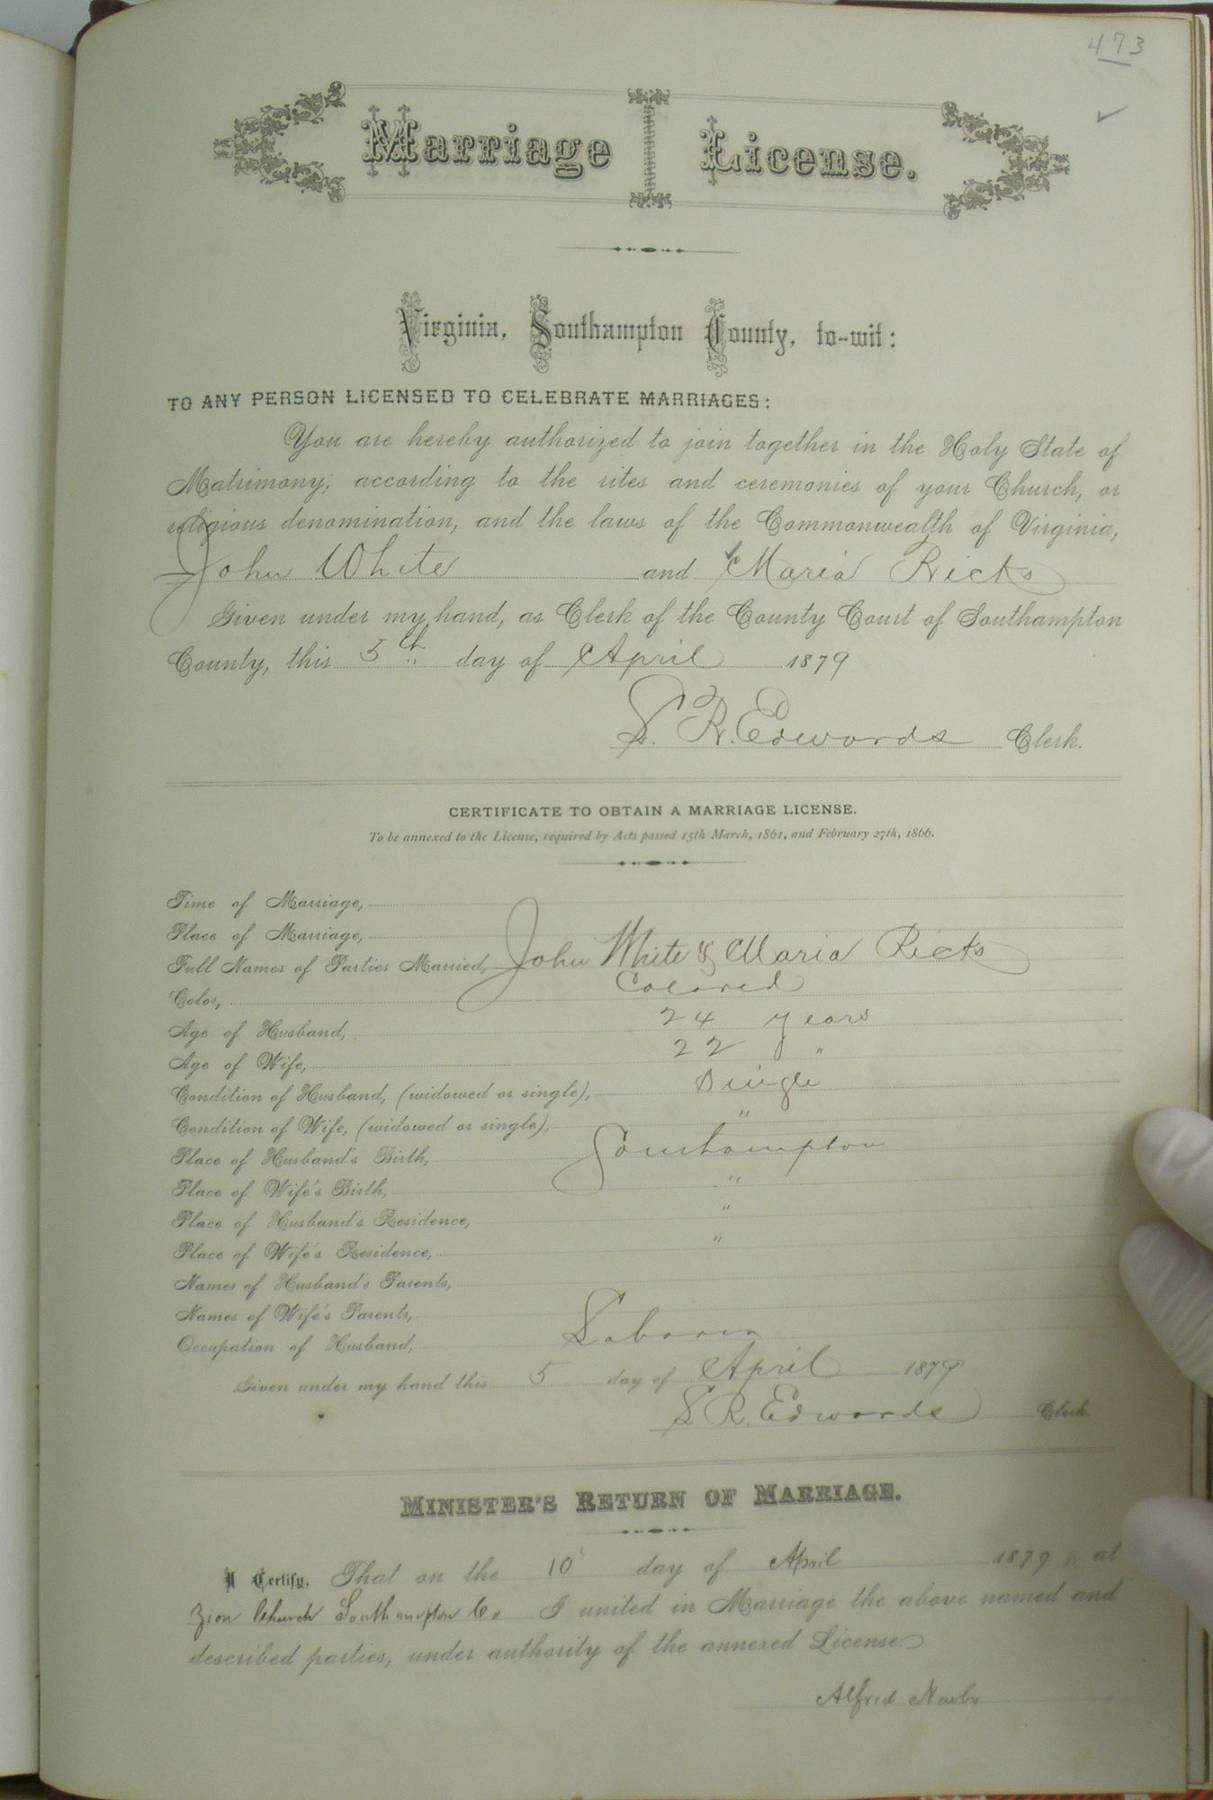 473
Marriage License.
Virginia, Southampton County, to-wit:
TO ANY PERSON LICENSED TO CELEBRATE MARRIAGES:
You are hereby authorized to join together in the Holy State of
Matrimony, according to the rites and ceremonies of your Church, or
religious denomination, and the laws of the Commonwealth of Virginia,
John White and Maria Ricks
Given under my hand, as Clerk of the County Court of Southampton
County, this 5th day of April 1879
S. R. Edwards Clerk.
CERTIFICATE TO OBTAIN A MARRIAGE LICENSE.
To be annexed to the License, required by Acts passed 15th March, 1861, and February 27th, 1866.
Time of Marriage,
Place of Marriage,
Full Names of Parties Married, John White & Maria Ricks
Color, Colored
Age of Husband, 24 years
Age of Wife, 22 "
Condition of Husband, (widowed or single), Single
Condition of Wife, (widowed or single), "
Place of Husband's Birth, Southampton
Place of Wife's Birth, "
Place of Husband's Residence, "
Place of Wife's Residence, "
Names of Husband's Parents,
Names of Wife's Parents,
Occupation of Husband, Laborer
Given under my hand this 5 day of April 1879
S. R. Edwards Clerk
MINISTER'S RETURN OF MARRIAGE.
I Certify, That on the 10 day of April 1879, at
Zion Church Southampton Co. I united in Marriage the above named and
described parties, under authority of the annexed License
Alfred